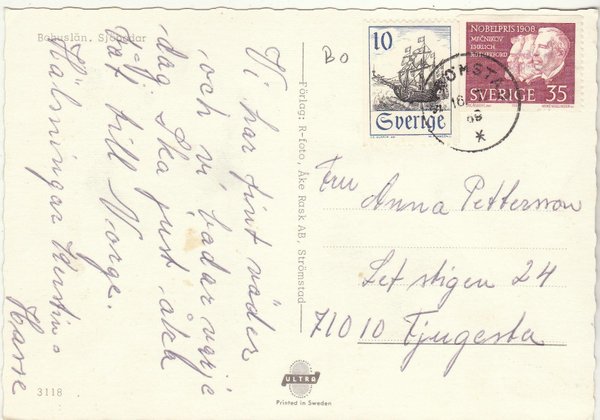 Bohuslän. Sjöbodar
Vi har fint väder
och vi badar varje
dag. Ska just åka
båt till Norge.
Hälsningar Kerstin o
Hasse
3118
Förlag: R-foto, Åke Rask AB, Strömstad
ULTRA
Printed in Sweden
BO
10
Sverige
NOBELPRIS 1908
MEČNIKOV
EHRLICH
RUTHERFORD
SVERIGE 35
Fru Anna Pettersson
Letstigen 24
71010 Fjugesta